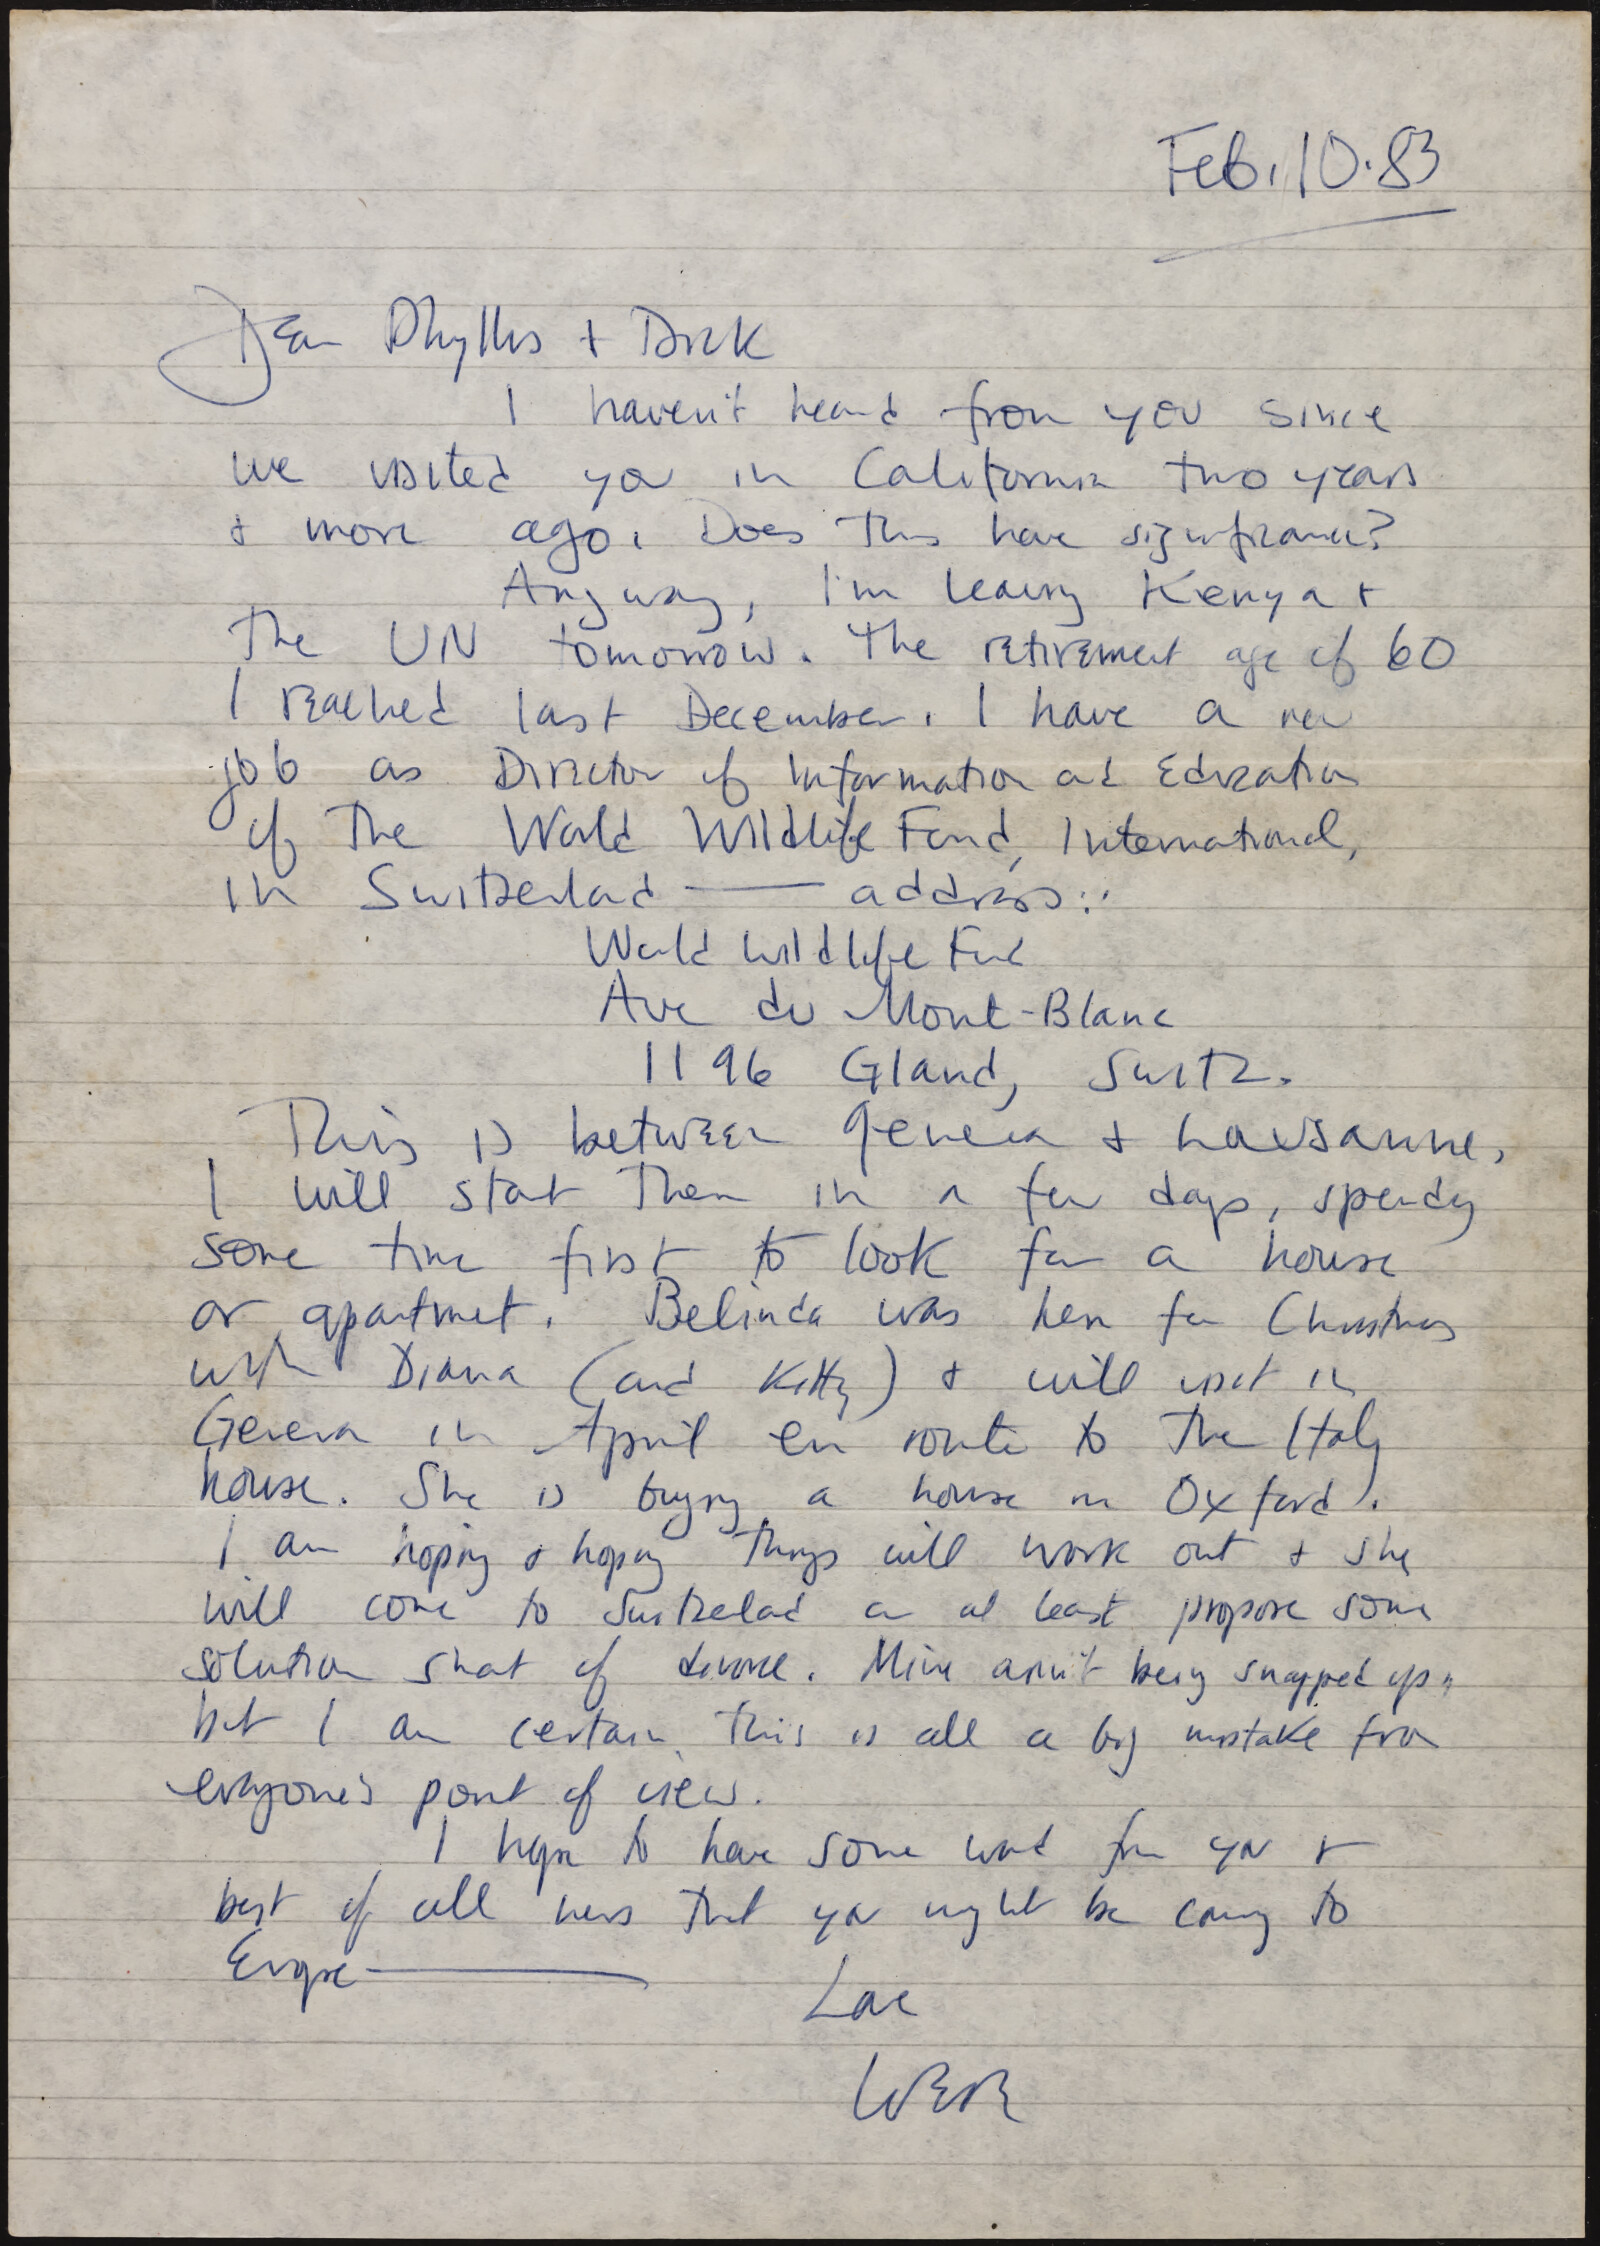 Feb. 10. 83
Dear Phyllis + Dick
I haven't heard from you since
we visited you in California two years
+ more ago. Does this have significance?
Anyway, I'm leaving Kenya +
the UN tomorrow. The retirement age of 60
I reached last December. I have a new
job as Director of Information and Education
of the World Wildlife Fund, International,
in Switzerland — address:
World Wildlife Fund
Ave du Mont-Blanc
1196 Gland, Switz.
This is between Geneva + Lausanne.
I will start there in a few days, spending
some time first to look for a house
or apartment. Belinda was here for Christmas
with Diana (and Kitty) + will visit in
Geneva in April en route to the Italy
house. She is buying a house in Oxford.
I am hoping + hoping things will work out + she
will come to Switzerland or at least propose some
solution short of divorce. Mine ain't being snapped up,
but I am certain this is all a big mistake from
everyone's point of view.
I hope to have some word from you +
best of all news that you might be coming to
Europe —
Love